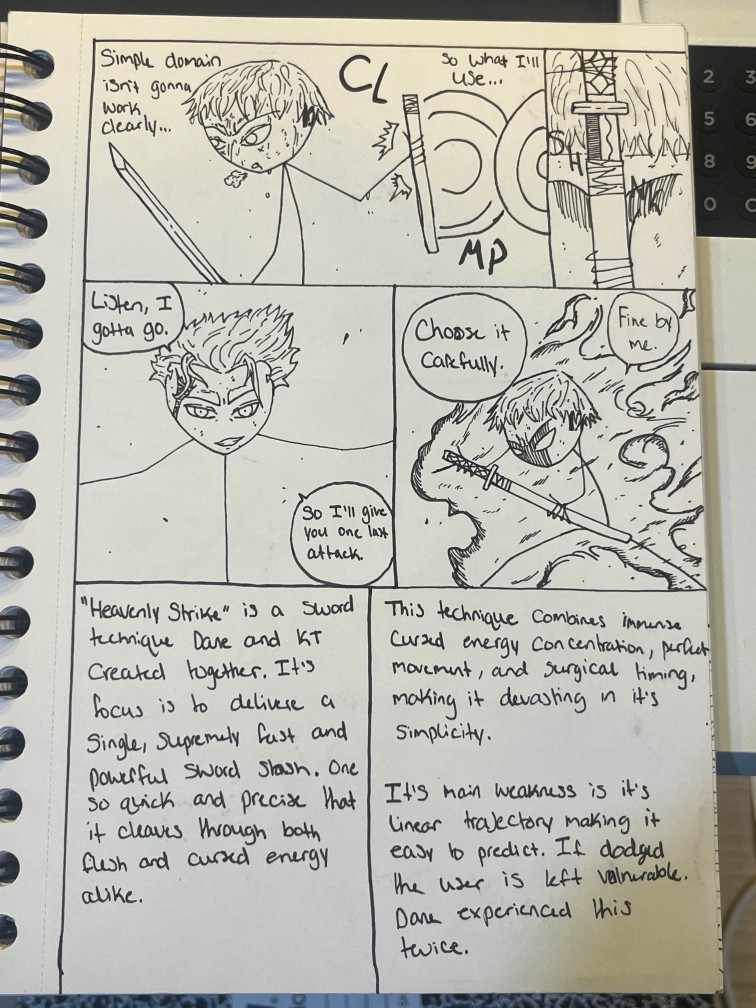 Simple domain
isn't gonna
work
clearly...
CL
MP
So what I'll
use...
SH
NK
Listen, I
gotta go.
So I'll give
you one last
attack.
Choose it
Carefully.
Fine by
me.
"Heavenly Strike" is a sword
technique Dane and KT
Created together. It's
focus is to delivere a
Single, supremely fast and
powerful sword slash. One
so quick and precise that
it cleaves through both
flesh and cursed energy
alike.
This technique combines immense
cursed energy concentration, perfect
movement, and surgical timing,
making it devasting in it's
simplicity.
It's main weakness is it's
linear trajectory making it
easy to predict. If dodged
the user is left vulnerable.
Dane experienced this
twice.
2
3
5
6
8
9
0
C